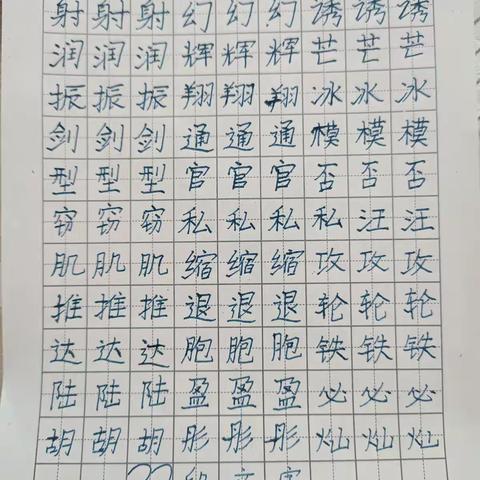 射射射幻幻幻诱诱诱
润润润辉辉辉芒芒芒
振振振翔翔翔冰冰冰
剑剑剑通通通模模模
型型型官官官否否否
窃窃窃私私私私汪汪
肌肌肌缩缩缩攻攻攻
推推推退退退轮轮轮
达达达胞胞胞铁铁铁
陆陆陆盈盈盈必必必
胡胡胡彤彤彤灿灿灿